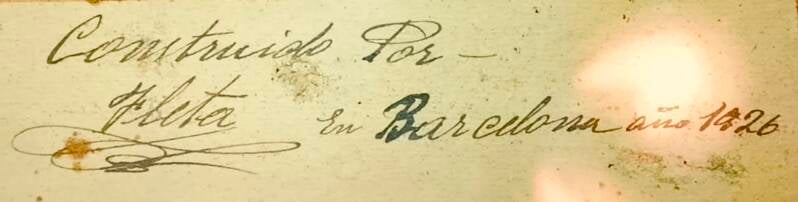 Construido Por –
Fleta en Barcelona año 1926